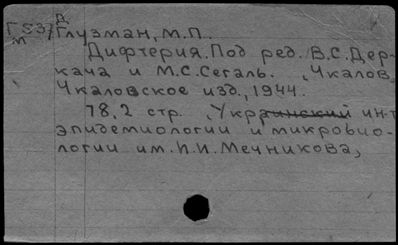 Д
Г537 Глузман, М.П.
м
Дифтерия. Под ред. В.С.Дер-
кача и М.С.Сегаль. , Чкалов,
Чкаловское изд., 1944.
78,2 стр. , Украинский ин-т
эпидемиологии и микробио-
логии им. И.И.Мечникова,